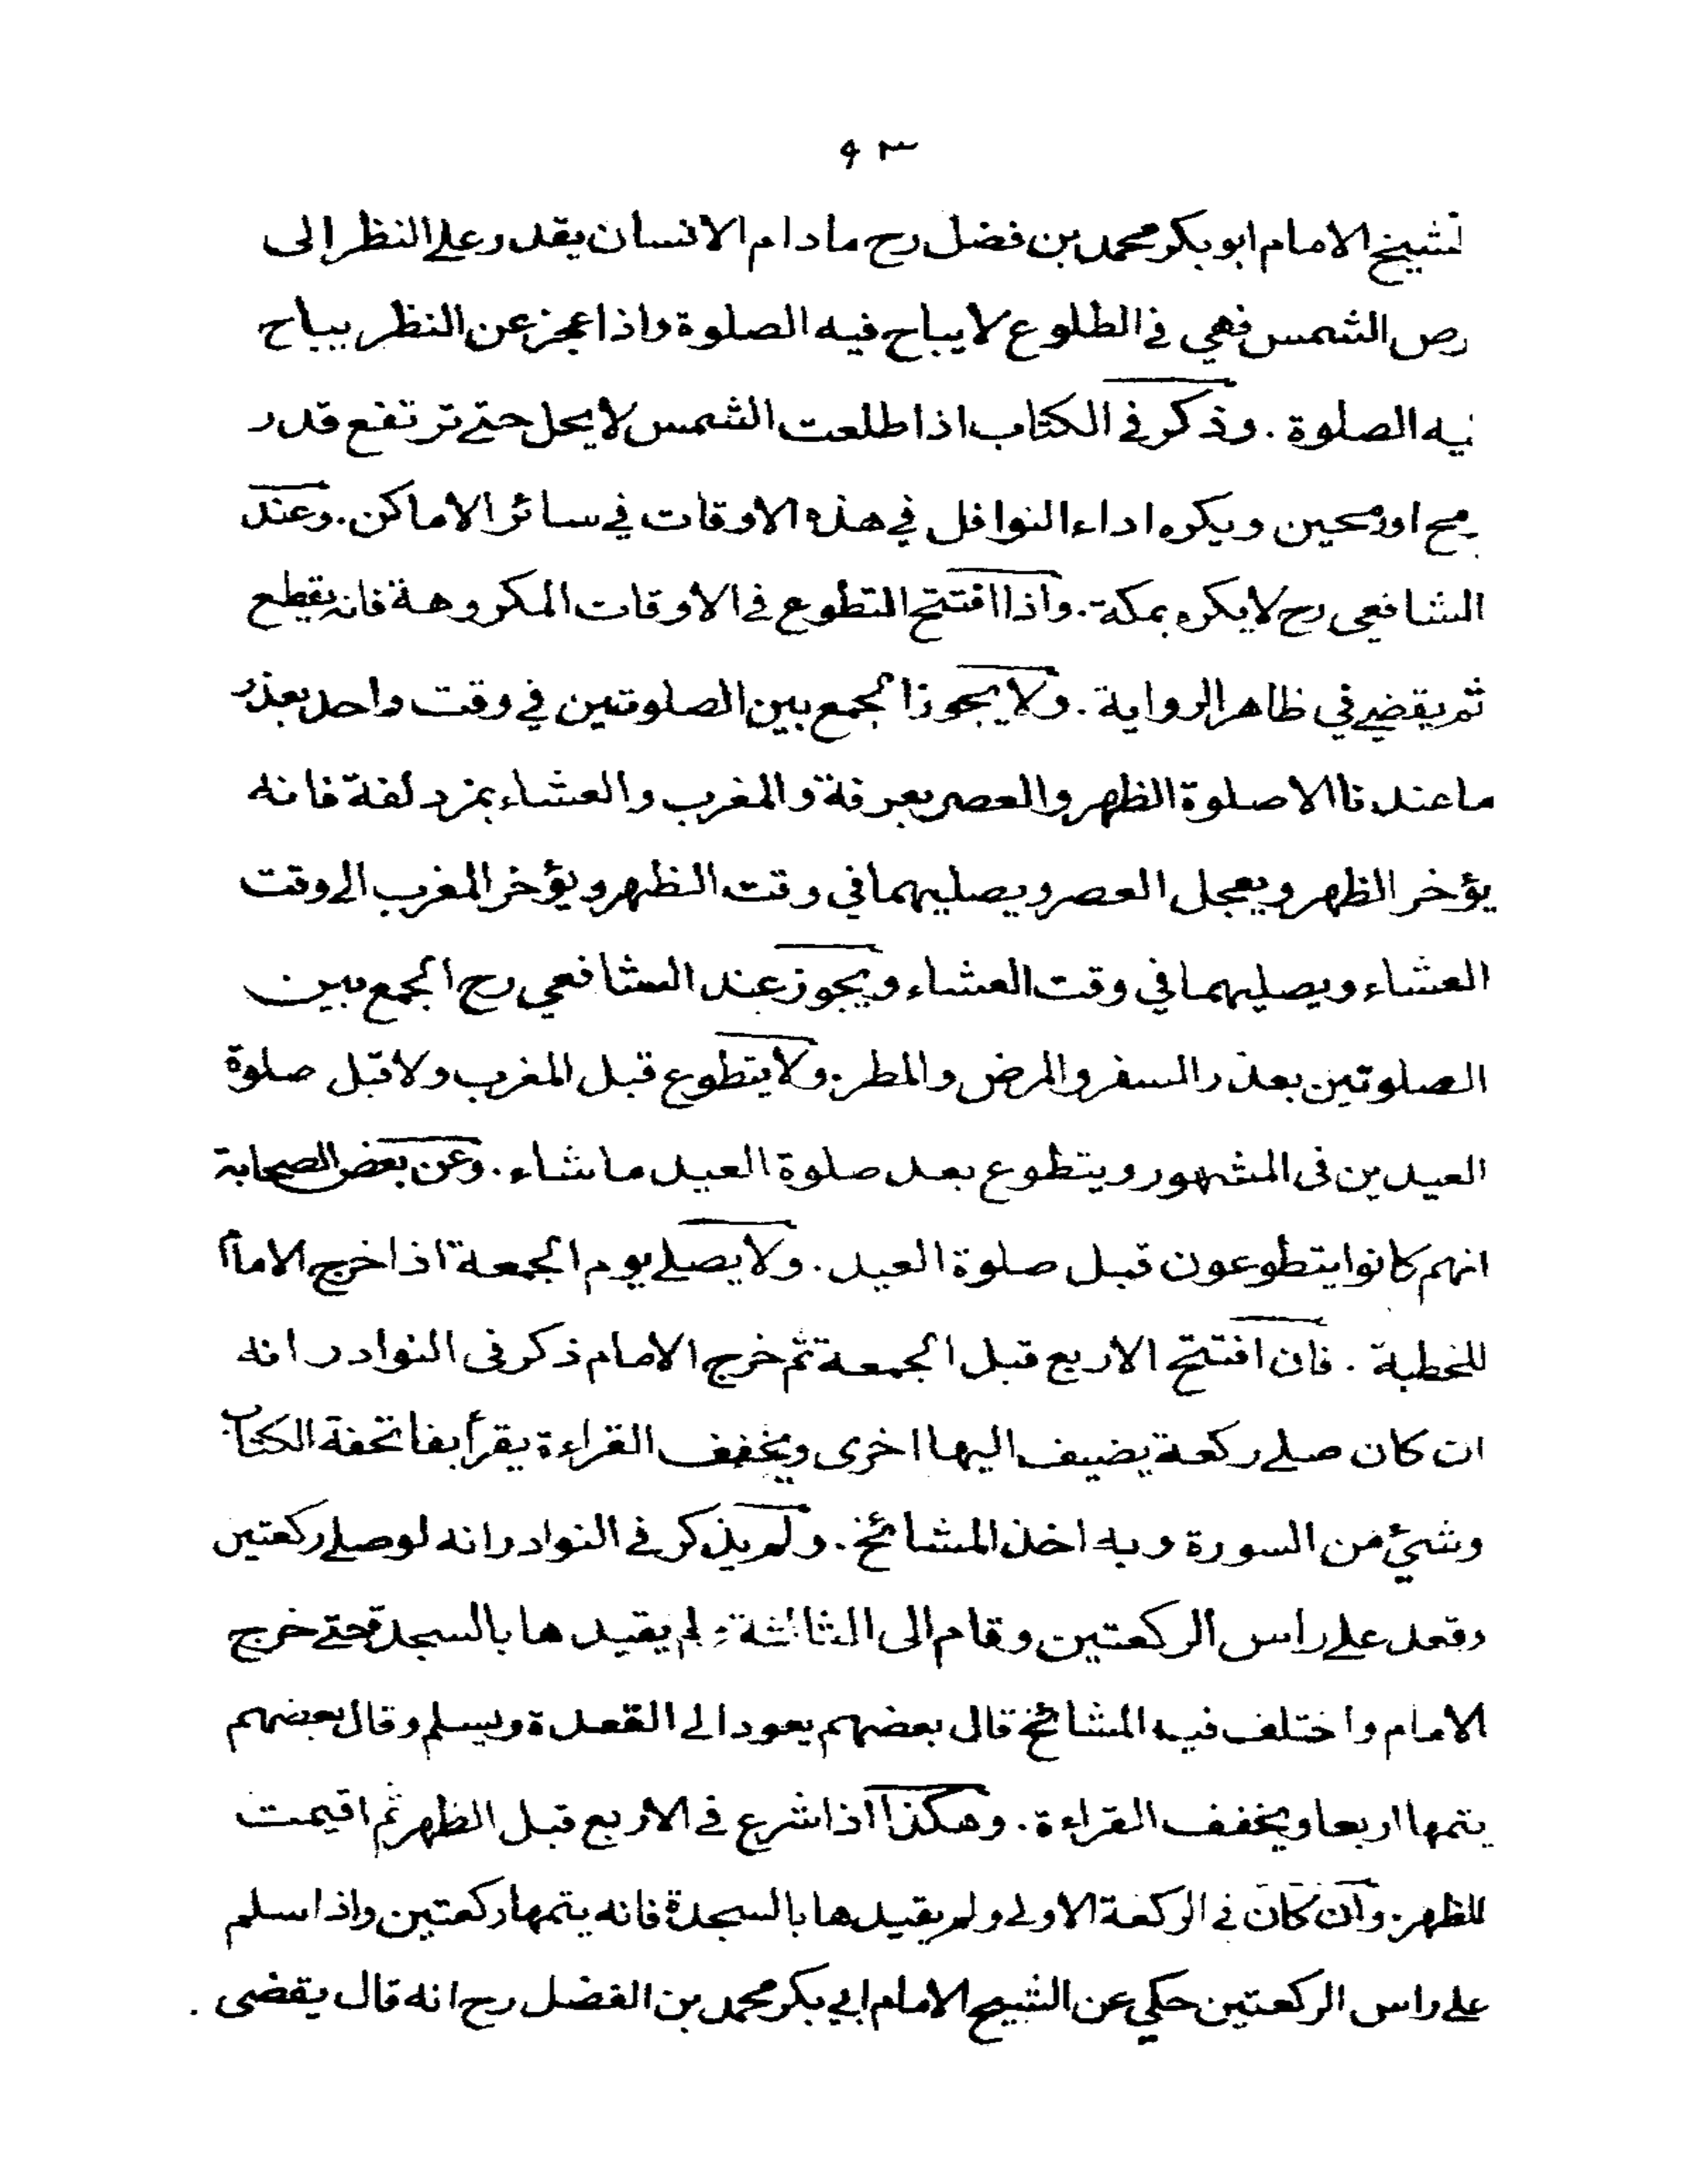 ۹۳
لشيخ الامام ابو بكر محمد بن فضل رح ما دام الانسان يقدر على النظر الى
رص الشمس فهي في الطلوع لا يباح فيه الصلوة واذا عجز عن النظر يباح
فيه الصلوة . وذكر في الكتاب اذا طلعت الشمس لا يحل حتى ترتفع قدر
رمح او رمحين ويكره اداء النوافل في هذه الاوقات في سائر الاماكن . وعند
الشافعي رح لا يكره بمكة . واذا افتتح التطوع في الاوقات المكروهة فانه يقطع
ثم يقضي في ظاهر الرواية . ولا يجوز الجمع بين الصلوتين في وقت واحد بعذر
ما عندنا الا صلوة الظهر والعصر بعرفة والمغرب والعشاء بمزدلفة فانه
يؤخر الظهر ويعجل العصر ويصليهما في وقت الظهر ويؤخر المغرب الى وقت
العشاء ويصليهما في وقت العشاء ويجوز عند الشافعي رح الجمع بين
الصلوتين بعذر السفر والمرض والمطر . ولا يتطوع قبل المغرب ولا قبل صلوة
العيدين في المشهور ويتطوع بعد صلوة العيد ما شاء . وعن بعض الصحابة
انهم كانوا يتطوعون قبل صلوة العيد . ولا يصلي يوم الجمعة اذا خرج الامام
للخطبة . فان افتتح الاربع قبل الجمعة ثم خرج الامام ذكر فى النوادر انه
ان كان صلى ركعة يضيف اليها اخرى ويخفف القراءة يقرأ بفاتحة الكتاب
وشئ من السورة وبه اخذ المشائخ . ولم يذكر في النوادر انه لو صلى ركعتين
وقعد على راس الركعتين وقام الى الثالثة و لم يقيدها بالسجدة حتى خرج
الامام واختلف فيه المشائخ قال بعضهم يعود الى القعدة ويسلم وقال بعضهم
يتمها اربعا ويخفف القراءة . وهكذا اذا شرع في الاربع قبل الظهر ثم اقيمت
للظهر . وان كان في الركعة الاولى ولم يقيدها بالسجدة فانه يتمها ركعتين واذا سلم
على راس الركعتين حكي عن الشيخ الامام ابي بكر محمد بن الفضل رح انه قال يقضى .